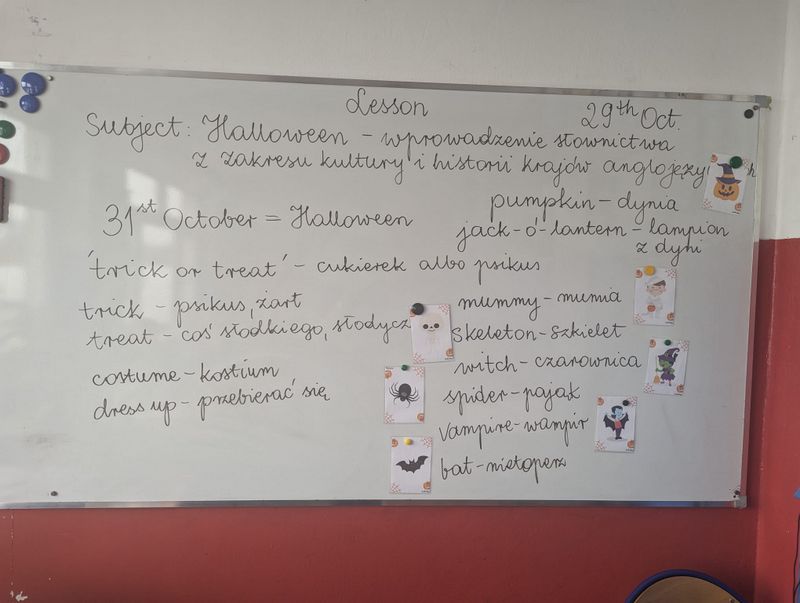 Lesson
29th Oct.
Subject: Halloween - wprowadzenie słownictwa
z zakresu kultury i historii krajów
31st October = Halloween
'trick or treat' - cukierek albo psikus
trick - psikus, żart
treat - coś słodkiego,
costume - kostium
dress up - przebierać się
pumpkin - dynia
jack-o'-lantern - lampion
z dyni
mummy - mumia
skeleton - szkielet
witch - czarownica
spider - pająk
vampire - wampir
bat - nietoperz